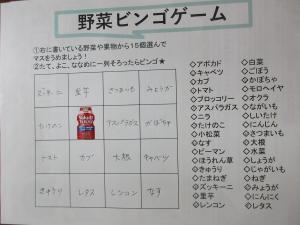 野菜ビンゴゲーム
①右に書いている野菜や果物から15個選んで
マスをうめましょう!
②たて、よこ、ななめに一列そろったらビンゴ★
ズッキーニ 里芋 さつまいも みょうが
たけのこ アスパラガス かぼちゃ
トマト カブ 大根 キャベツ
きゅうり レタス レンコン なす
◇アボカド ◇白菜
◇キャベツ ◇ごぼう
◇カブ ◇かぼちゃ
◇トマト ◇モロヘイヤ
◇ブロッコリー ◇オクラ
◇アスパラガス ◇ながいも
◇ニラ ◇しいたけ
◇たけのこ ◇にんじん
◇小松菜 ◇さつまいも
◇なす ◇大根
◇ピーマン ◇水菜
◇ほうれん草 ◇しょうが
◇きゅうり ◇じゃがいも
◇たまねぎ ◇ねぎ
◇ズッキーニ ◇みょうが
◇里芋 ◇にんにく
◇レンコン ◇レタス